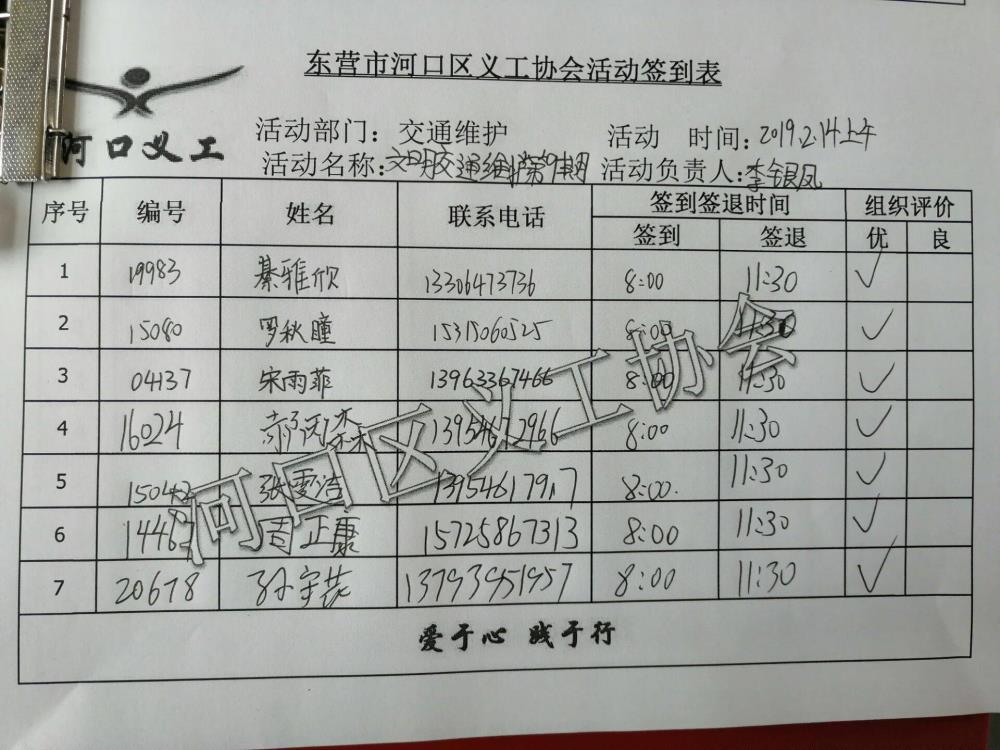 东营市河口区义工协会活动签到表
河口义工
活动部门：交通维护 活动 时间：2019.2.14上午
活动名称：文明交通维护第9期 活动负责人：李银凤
序号 编号 姓名 联系电话 签到签退时间 组织评价
签到 签退 优 良
1 19983 綦雅欣 13306473736 8:00 11:30 ✓
2 15080 罗秋瞳 15315060525 8:00 11:30 ✓
3 04137 宋雨菲 13963367466 8:00 11:30 ✓
4 16024 郝丙森 13954672966 8:00 11:30 ✓
5 15042 张雯洁 8:00 11:30 ✓
6 正康 15725867313 8:00 11:30 ✓
7 20678 孙宇茂 13793951957 8:00 11:30 ✓
爱于心 践于行
河口区义工协会